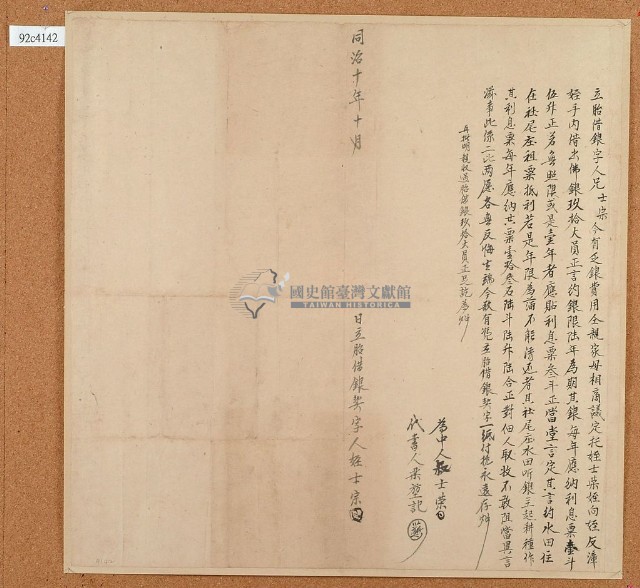 92c4142
立胎借銀字人兄士榮今有乏銀費用仝親家母相商議定托姪士榮姪向姪友漳
姪手內借出佛銀玖拾大員正言約銀限陸年為期其銀每年應納利息粟壹斗
伍升正若無照限或是壹年者應貼利息粟叁斗正當堂言定其言約水田住
在社尾庄租粟抵利若是年限為滿不能清還者其社尾庄水田聽銀主起耕種作
其利息粟每年應納其粟壹拾叁石陸斗陸升陸合正對佃人取收不敢阻當異言
滋事此係二比兩愿各無反悔生端今欲有憑立胎借銀契字一紙付执永遠存炤
再批明親收過胎借銀玖拾大員正足訖為炤
為中人 士榮
代書人 記
同治十年十月 日立胎借銀契字人姪士宗
國史館臺灣文獻館
TAIWAN HISTORICA